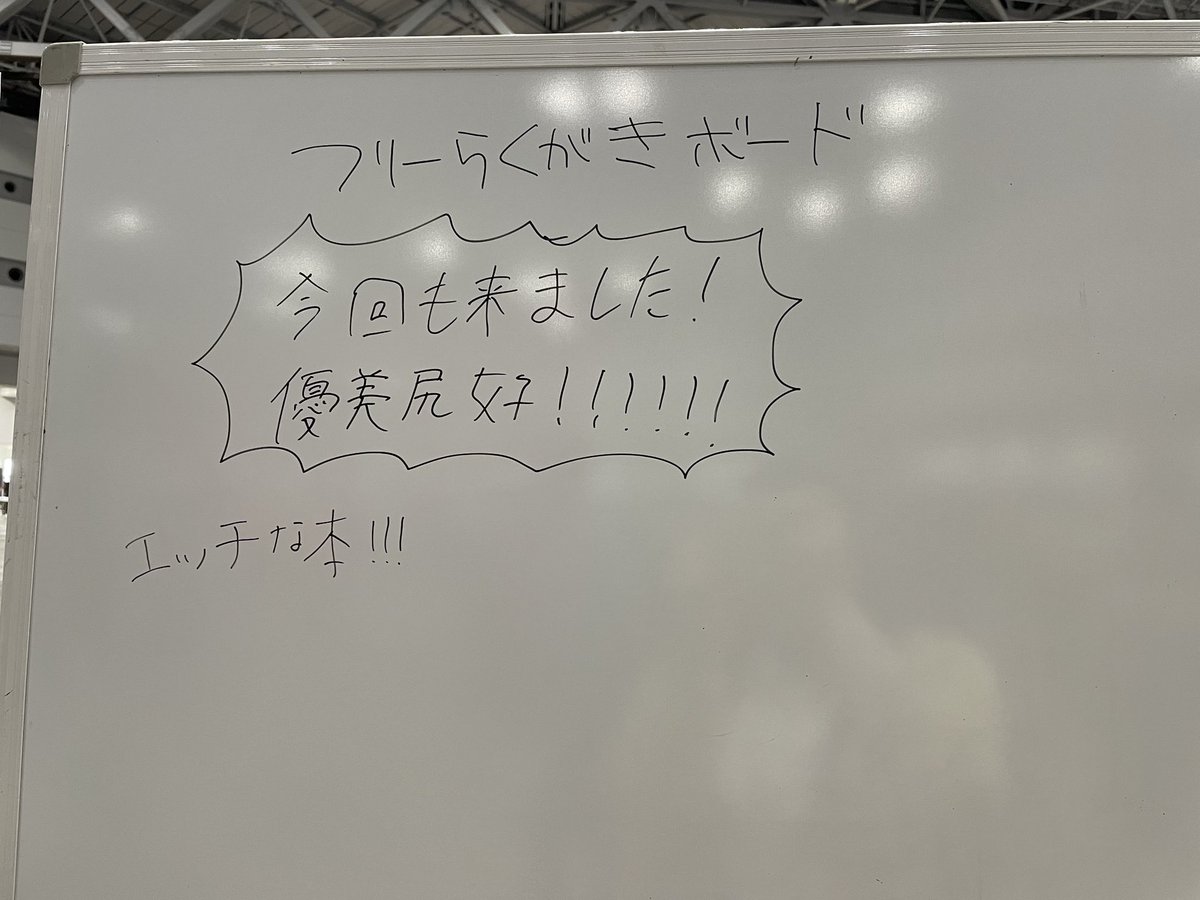 フリーらくがきボード
今回も来ました!
優美尻好!!!!!!
エッチな本!!!